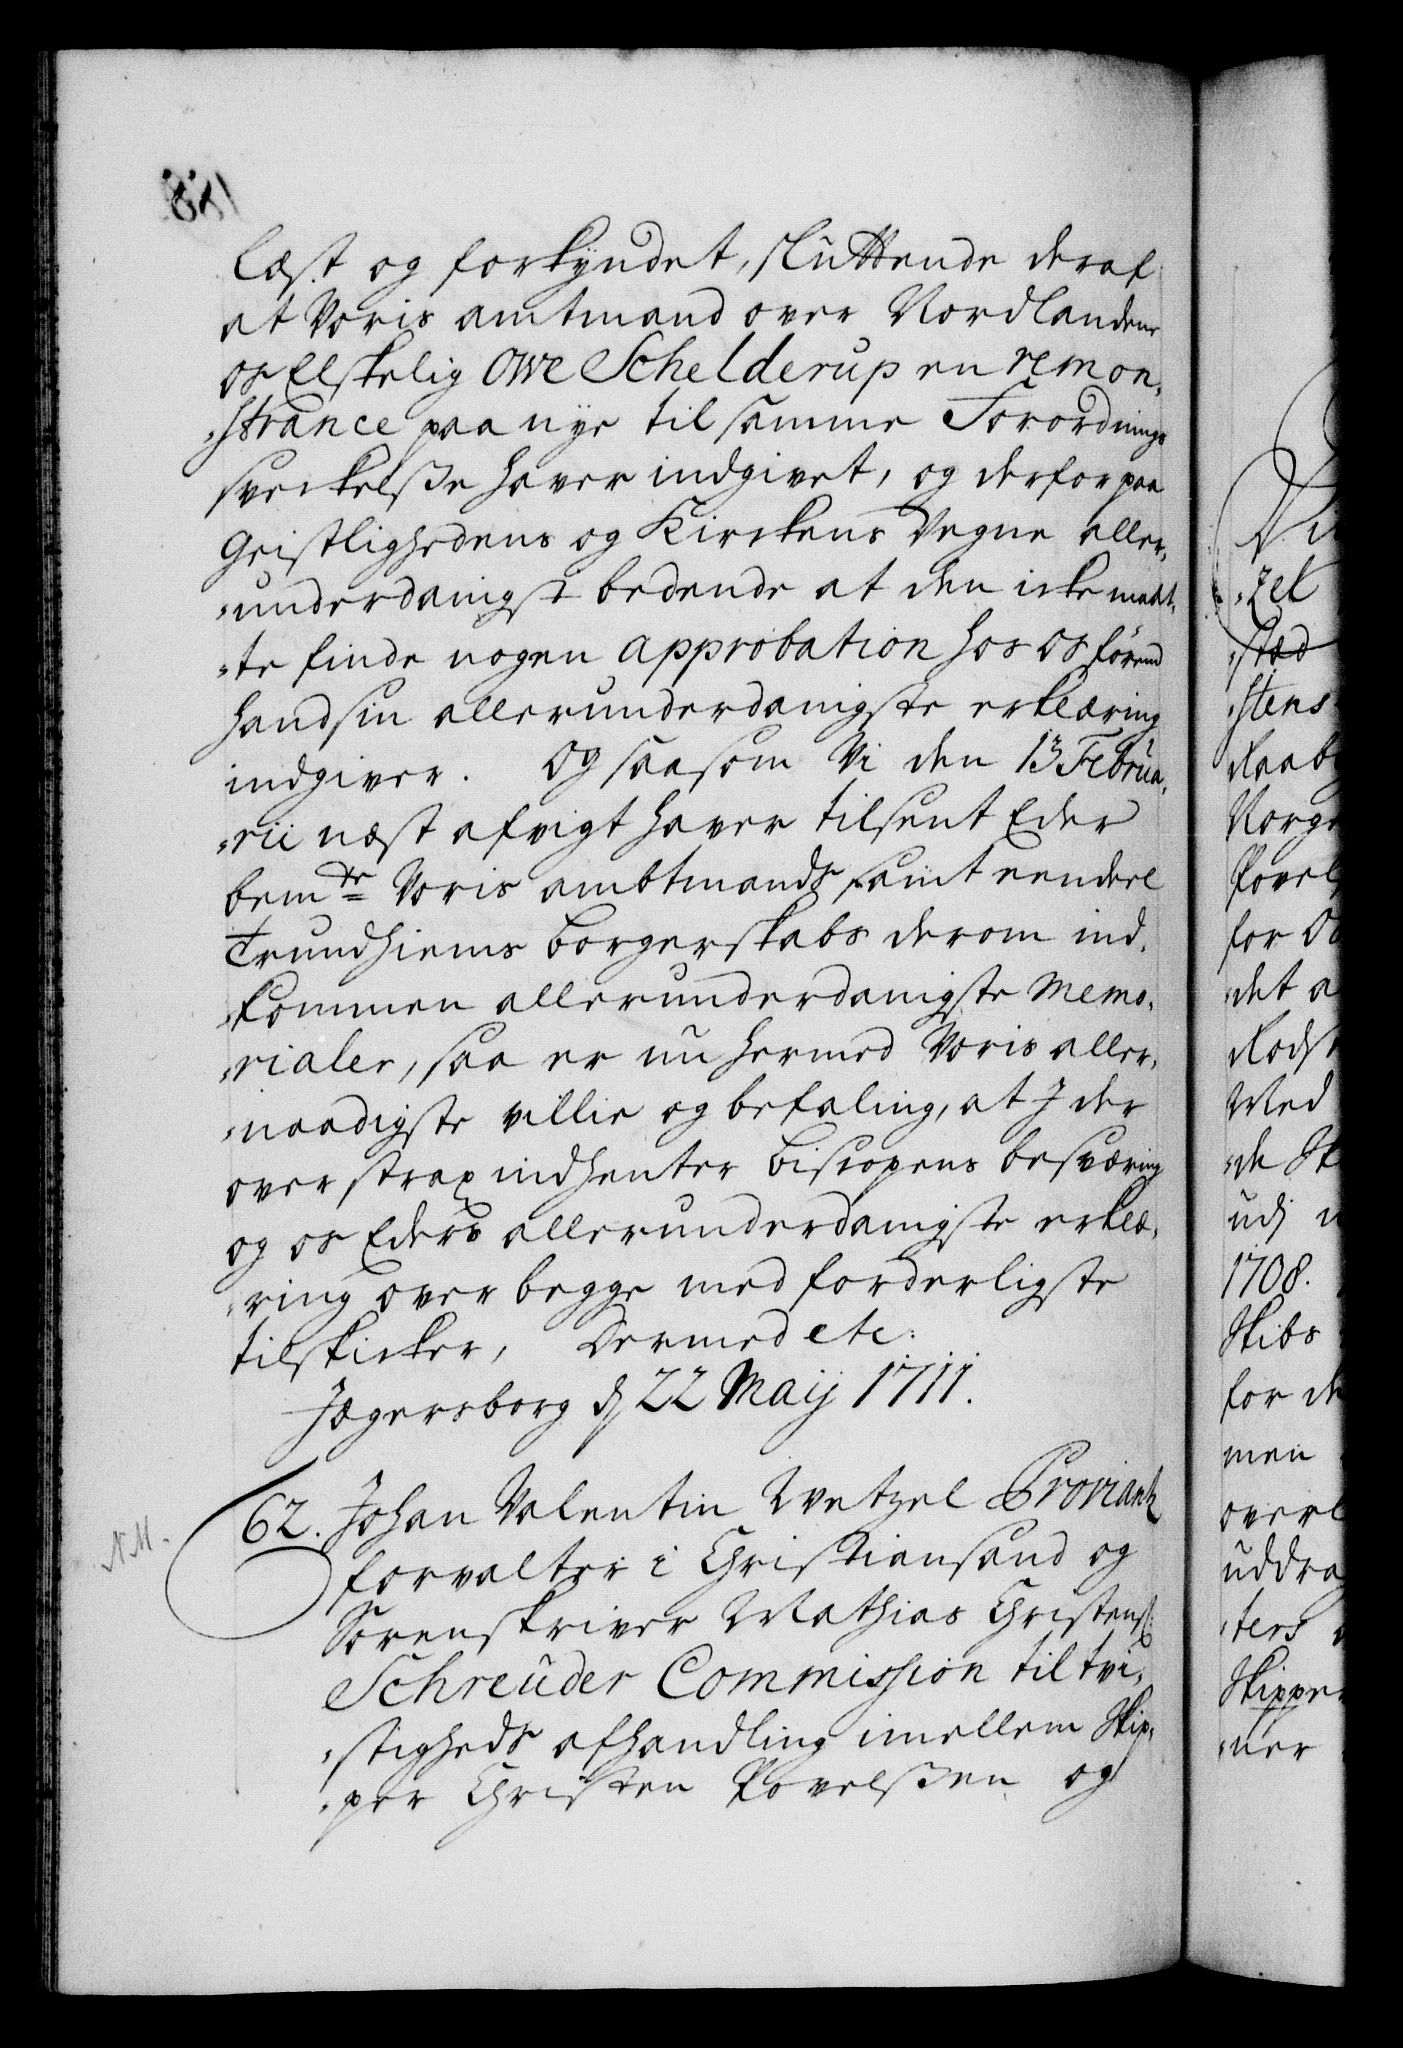 læst og forkyndet, sluttende deraf
at Voris amtmand over Nordlandene
os Elskelig Owe Schelderup en remon-
-strance paa nye til samme Forordnings
sveckelsse haver indgivet, og derfor paa
Geistlighedens og Kirckens Vegne aller-
-underdanigst bedende at den icke maat-
-te finde nogen approbation hos os førend
hand sin allerunderdanigste erklæring
indgiver. Og saasom Vi den 13 Februa-
-rii næst afvigt haver tilsent Eder
bemte Voris ambtmands samt eendeel
Trundhiems borgerskabs derom ind-
-kommen allerunderdanigste Memo-
-rialer, saa er nu hermed Voris aller-
-naadigste villie og befaling, at I der
over strax indhenter biscopens besværing
og os Eders allerunderdanigste erklæ-
-ring over begge med forderligste
tilskicker, Dermed etc:
Jægersborg d 22 Maij 1711.
62. Johan Valentin Wetzel Proviant
N.M.
forvalter i Christiansand og
Sorenskriver Mathias Christens:
Schreuder Commission til tvi-
-stigheds afhandling imellem Skip-
-per Christen Povelssen og
-zel
-sted
-stens
for
det a
Med
de Sk
udj
1708.
Skibs
for de
men
-ters
Skippe
-ner